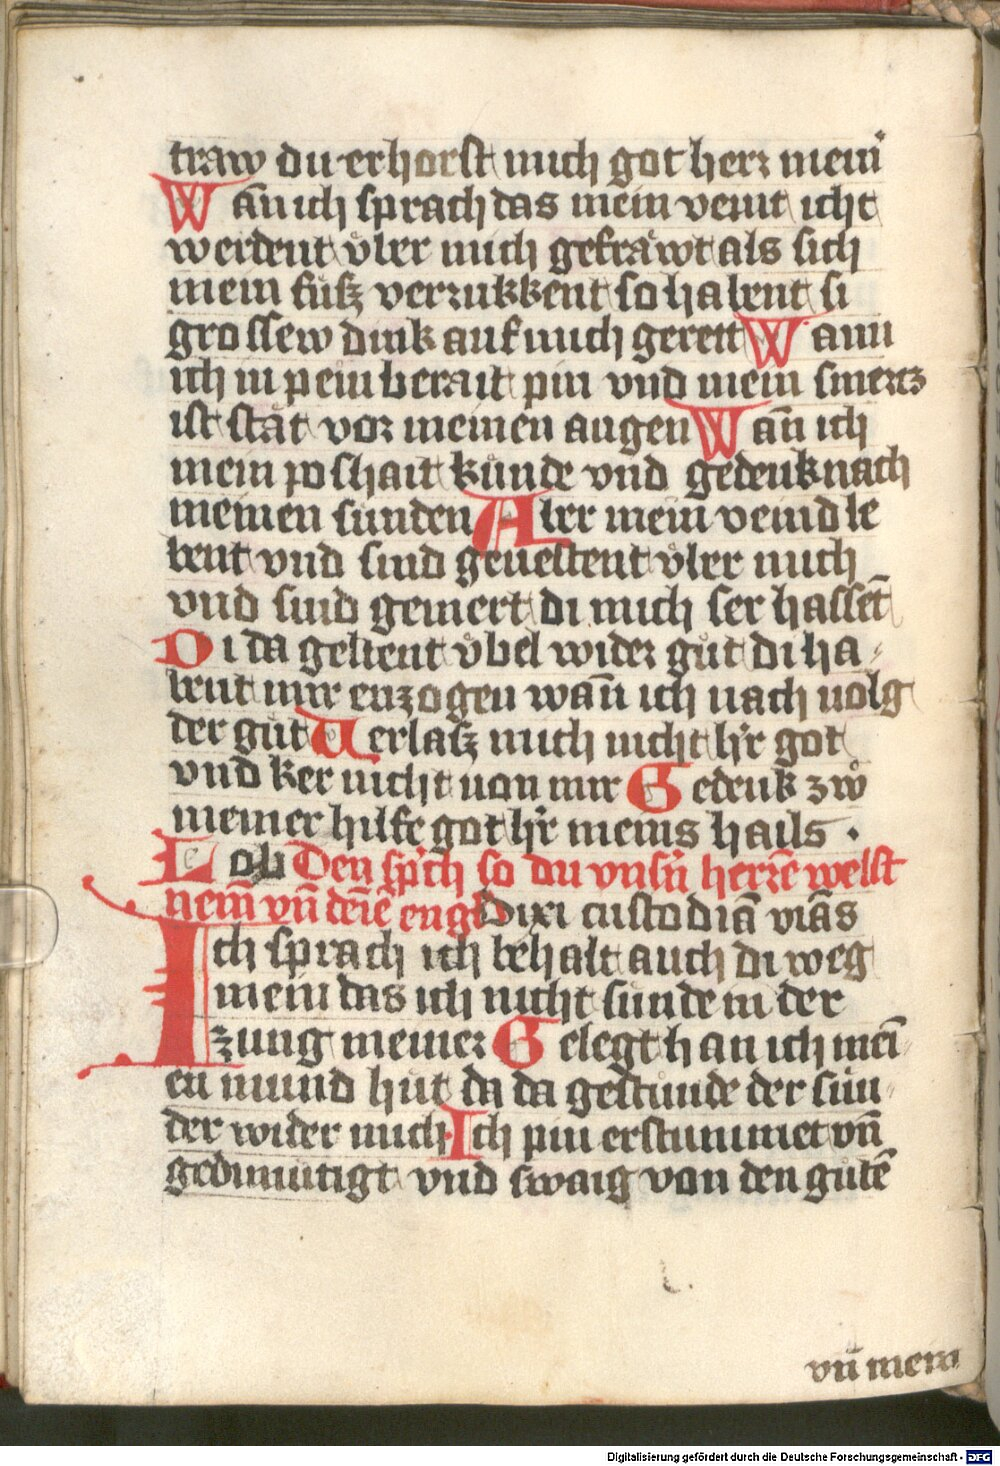 traw du erhorst mich got herr mein
Wan̄ ich sprach das mein veint icht
werdent vͤber mich gefraͤwt als sich
mein fuͤsz verrukkent so habent si
grossew dink auf mich gerett Wann
ich in pein berait pin vnd mein smercz
ist staͤt vor meinen augen Wan̄ ich
mein poshait kuͤnde vnd gedenk nach
meinen sunden Aber mein veind le
bent vnd sind geuestent vͤber mich
vnd sind gemert di mich ser hassēt
Di da geltent vͤbel wider guͦt di ha⸗
bent mir enzogen wan̄ ich nach uolg
der guͦt Verlasz mich nicht h'r got
vnd ker nicht uon mir Gedenk zwͦ
meiner hilfe got h'r meins hails .
Lob Den sp'ch so du vnsn̄ herrē welst
nem̄ vn̄ dēiē engl Dixi custodiā viās
Ich sprach ich behalt auch di weg
mein das ich nicht sunde in der
zung meiner Gelegt han ich mei⸗
en mund huͦt da da gestunde der sun⸗
der wider mich Ich pin erstummet vn̄
gedimutigt vnd swaig von den gutē
vn̄ mein
Digitalisierung gefördert durch die Deutsche Forschungsgemeinschaft - DFG